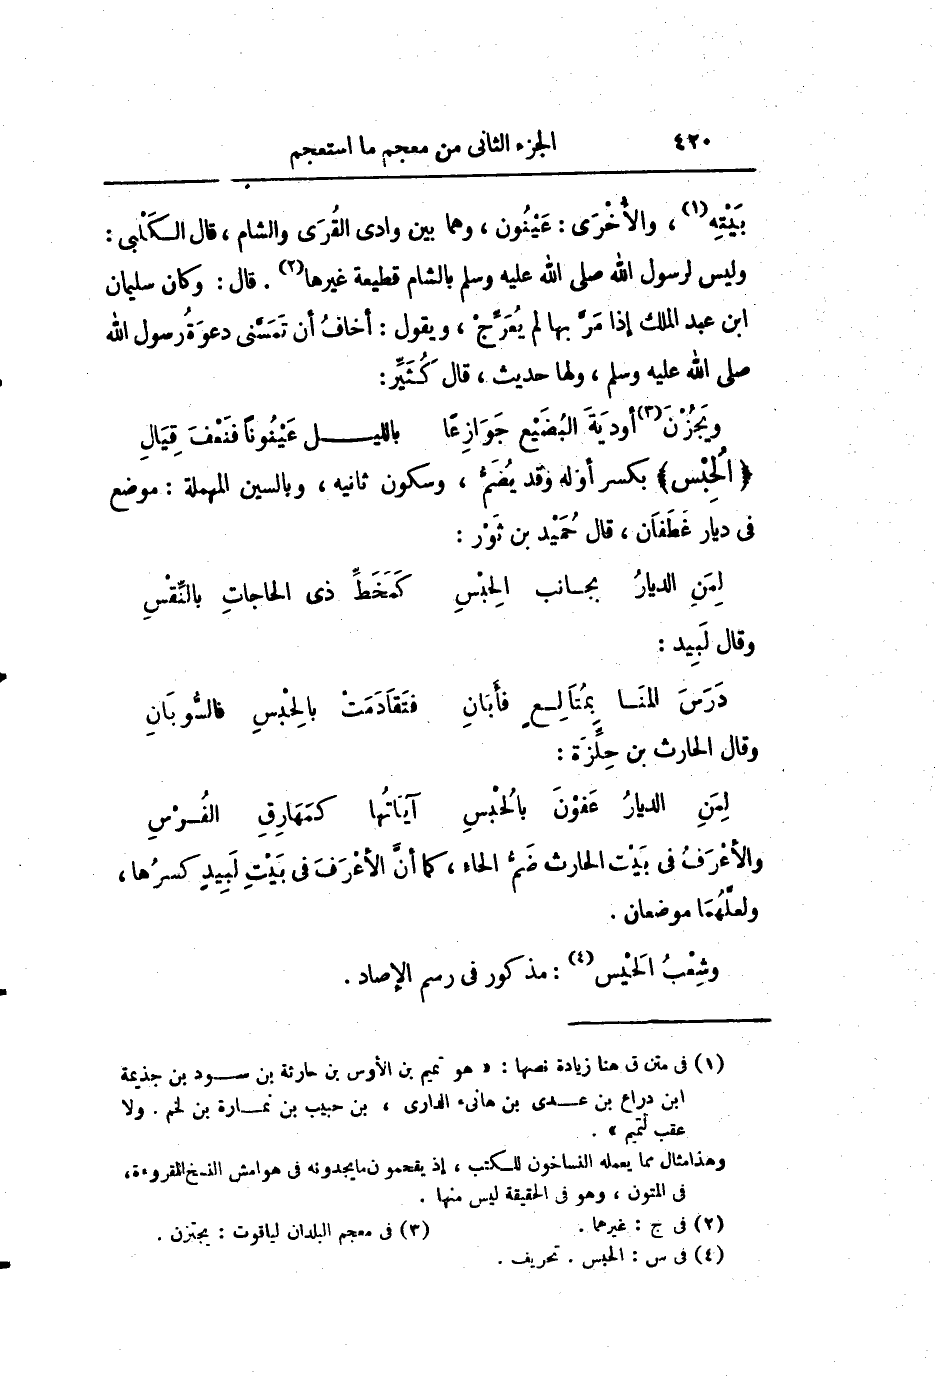 ٤٢٠ الجزء الثانى من معجم ما استعجم
بَيْتِه(١) ، والأُخْرَى : عَيْنُون ، وهما بين وادى القُرَى والشام ، قال الكَلْبى :
وليس لرسول الله صلى الله عليه وسلم بالشام قطيعة غيرها(٢) . قال : وكان سليمان
ابن عبد الملك إذا مَرَّ بها لم يُعَرِّجْ ، ويقول : أخافُ أن تَمَسَّنى دعوَةُ رسول الله
صلى الله عليه وسلم ، ولها حديث ، قال كُثَيِّر :
ويَجُزْنَ(٣) أوديَةَ البُضَيْعِ جَوَازِعًا بالليـــل عَيْنُوناً فنَعْفَ قِيَالِ
﴿ الُحِبْس ﴾ بكسر أوله وقد يُضَمُّ ، وسكون ثانيه ، وبالسين المهملة : موضع
فى ديار غَطَفَان ، قال حُمَيْد بن ثَوْر :
لِمَنِ الديارُ بجـانب الحِبْسِ كَمَخَطِّ ذى الحاجاتِ بالنِّقْسِ
وقال لَبِيد :
دَرَسَ المنَـا بِمُتَالِـعٍ فأَبَانِ فتَقَادَمَتْ بالِحبْسِ فالسُّوبَانِ
وقال الحارث بن حِلِّزَة :
لِمَنِ الديارُ عَفَوْنَ بالُحْبْسِ آيَاتُها كمَهَارِقِ الفُـرْسِ
والأعْرَفُ فى بَيْت الحارث ضَمُّ الحاء ، كما أنَّ الأعْرَفَ فى بَيْتِ لَبِيدٍ كسرُها ،
ولعلَّهُمَا موضعان .
وشِعْبُ الَحْيْس(٤) : مذكور فى رسم الإصاد .
(١) فى متن ق هنا زيادة نصها : « هو تميم بن الأوس بن حارثة بن ســود بن جذيمة
ابن دراع بن عـــدى بن هانىء الدارى ، بن حبيب بن نمــارة بن لخم . ولا
عقب لتميم » .
وهذا مثال مما يعمله النساخون للكتب ، إذ يقحمون ما يجدونه فى هوامش النسخ المقروءة ،
فى المتون ، وهو فى الحقيقة ليس منها .
(٢) فى ج : غيرهما . (٣) فى معجم البلدان لياقوت : يجتزن .
(٤) فى س : الحبس . تحريف .